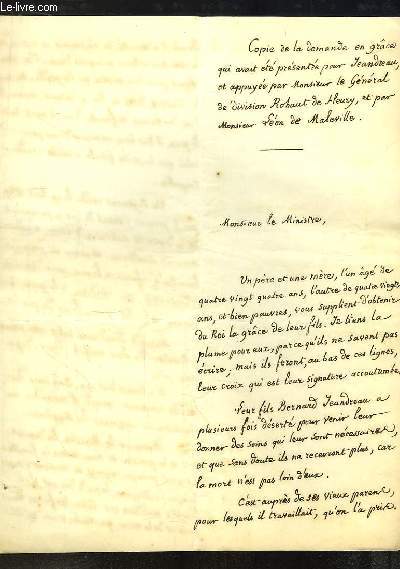 Le-livre.com
Copie de la demande en grâce
qui avait été présentée pour Jeandreau,
et appuyée par Monsieur le Général
de division Rohaut de Fleury, et par
Monsieur Léon de Maleville.
Monsieur le Ministre,
Un père et une mère, l'un âgé de
quatre vingt quatre ans, l'autre de quatre vingts
ans, et bien pauvres, vous supplient d'obtenir
du Roi la grâce de leur fils. Je tiens la
plume pour eux, parce qu'ils ne savent pas
écrire, mais ils feront, au bas de ces lignes,
leur croix qui est leur signature accoutumée.
Leur fils Bernard Jeandreau a
plusieurs fois déserté pour venir leur
donner des soins qui leur sont nécessaires,
et que sans doute ils ne recevront plus, car
la mort n'est pas loin d'eux.
C'est auprès de ses vieux parents,
pour lesquels il travaillait, qu'on l'a pris.